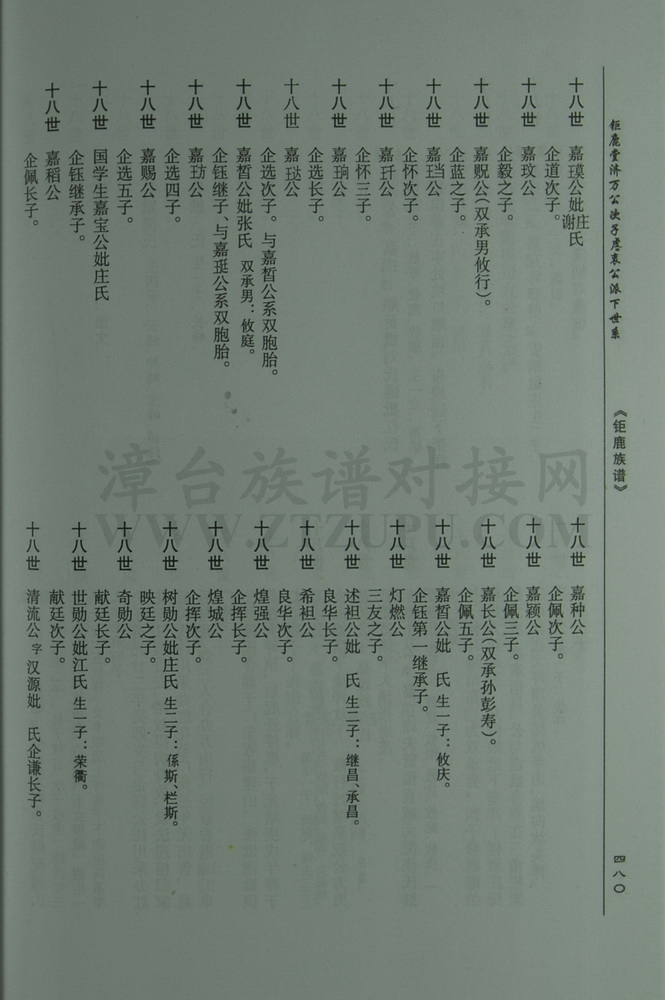 钜鹿堂济万公次子彦哀公派下世系
《钜鹿族谱》
四八〇
十八世 嘉瑛公妣庄谢氏
企道次子。
十八世 嘉玟公
企毅之子。
十八世 嘉贶公(双承男攸行)。
企蓝之子。
十八世 嘉珰公
企怀次子。
十八世 嘉玕公
企怀三子。
十八世 嘉珦公
企选长子。
十八世 嘉㻱公
企选次子。与嘉皙公系双胞胎。
十八世 嘉皙公妣张氏 双承男:攸庭。
企钰继子、与嘉珽公系双胞胎。
十八世 嘉玏公
企选四子。
十八世 嘉赐公
企选五子。
十八世 国学生嘉宝公妣庄氏
企钰继承子。
十八世 嘉稻公
企佩长子。
十八世 嘉种公
企佩次子。
十八世 嘉颖公
企佩三子。
十八世 嘉长公(双承孙彭寿)。
企佩五子。
十八世 嘉皙公妣 氏 生一子:攸庆。
企钰第一继承子。
十八世 灯燃公
三友之子。
十八世 述袒公妣 氏 生二子:继昌、承昌。
良华长子。
十八世 希袒公
良华次子。
十八世 煌强公
企挥长子。
十八世 煌城公
企挥次子。
十八世 树勋公妣庄氏 生二子:係斯、栏斯。
映廷之子。
十八世 奇勋公
献廷长子。
十八世 世勋公妣江氏 生一子:荣衢。
献廷次子。
十八世 清流公 字 汉源妣 氏企谦长子。
漳台族谱对接网
WWW.ZTZUPU.COM